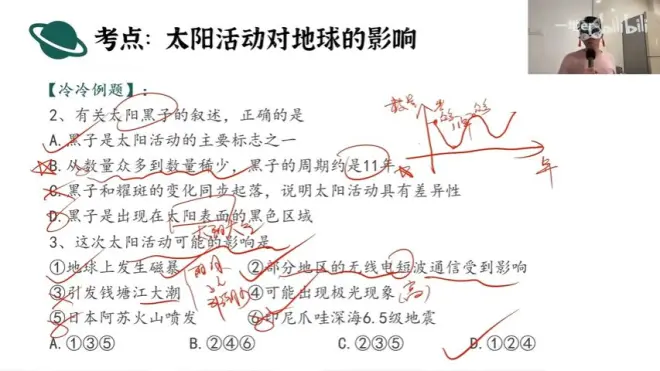 考点：太阳活动对地球的影响
bilibili
【冷冷例题】：
2、有关太阳黑子的叙述，正确的是
A. 黑子是太阳活动的主要标志之一
B. 从数量众多到数量稀少，黑子的周期约是11年
C. 黑子和耀斑的变化同步起落，说明太阳活动具有差异性
D. 黑子是出现在太阳表面的黑色区域
3、这次太阳活动可能的影响是
①地球上发生磁暴 ②部分地区的无线电短波通信受到影响
③引发钱塘江大潮 ④可能出现极光现象
⑤日本阿苏火山喷发 ⑥印尼爪哇深海6.5级地震
A. ①③⑤ B. ②④⑥ C. ②③⑤ D. ①②④
11年
年